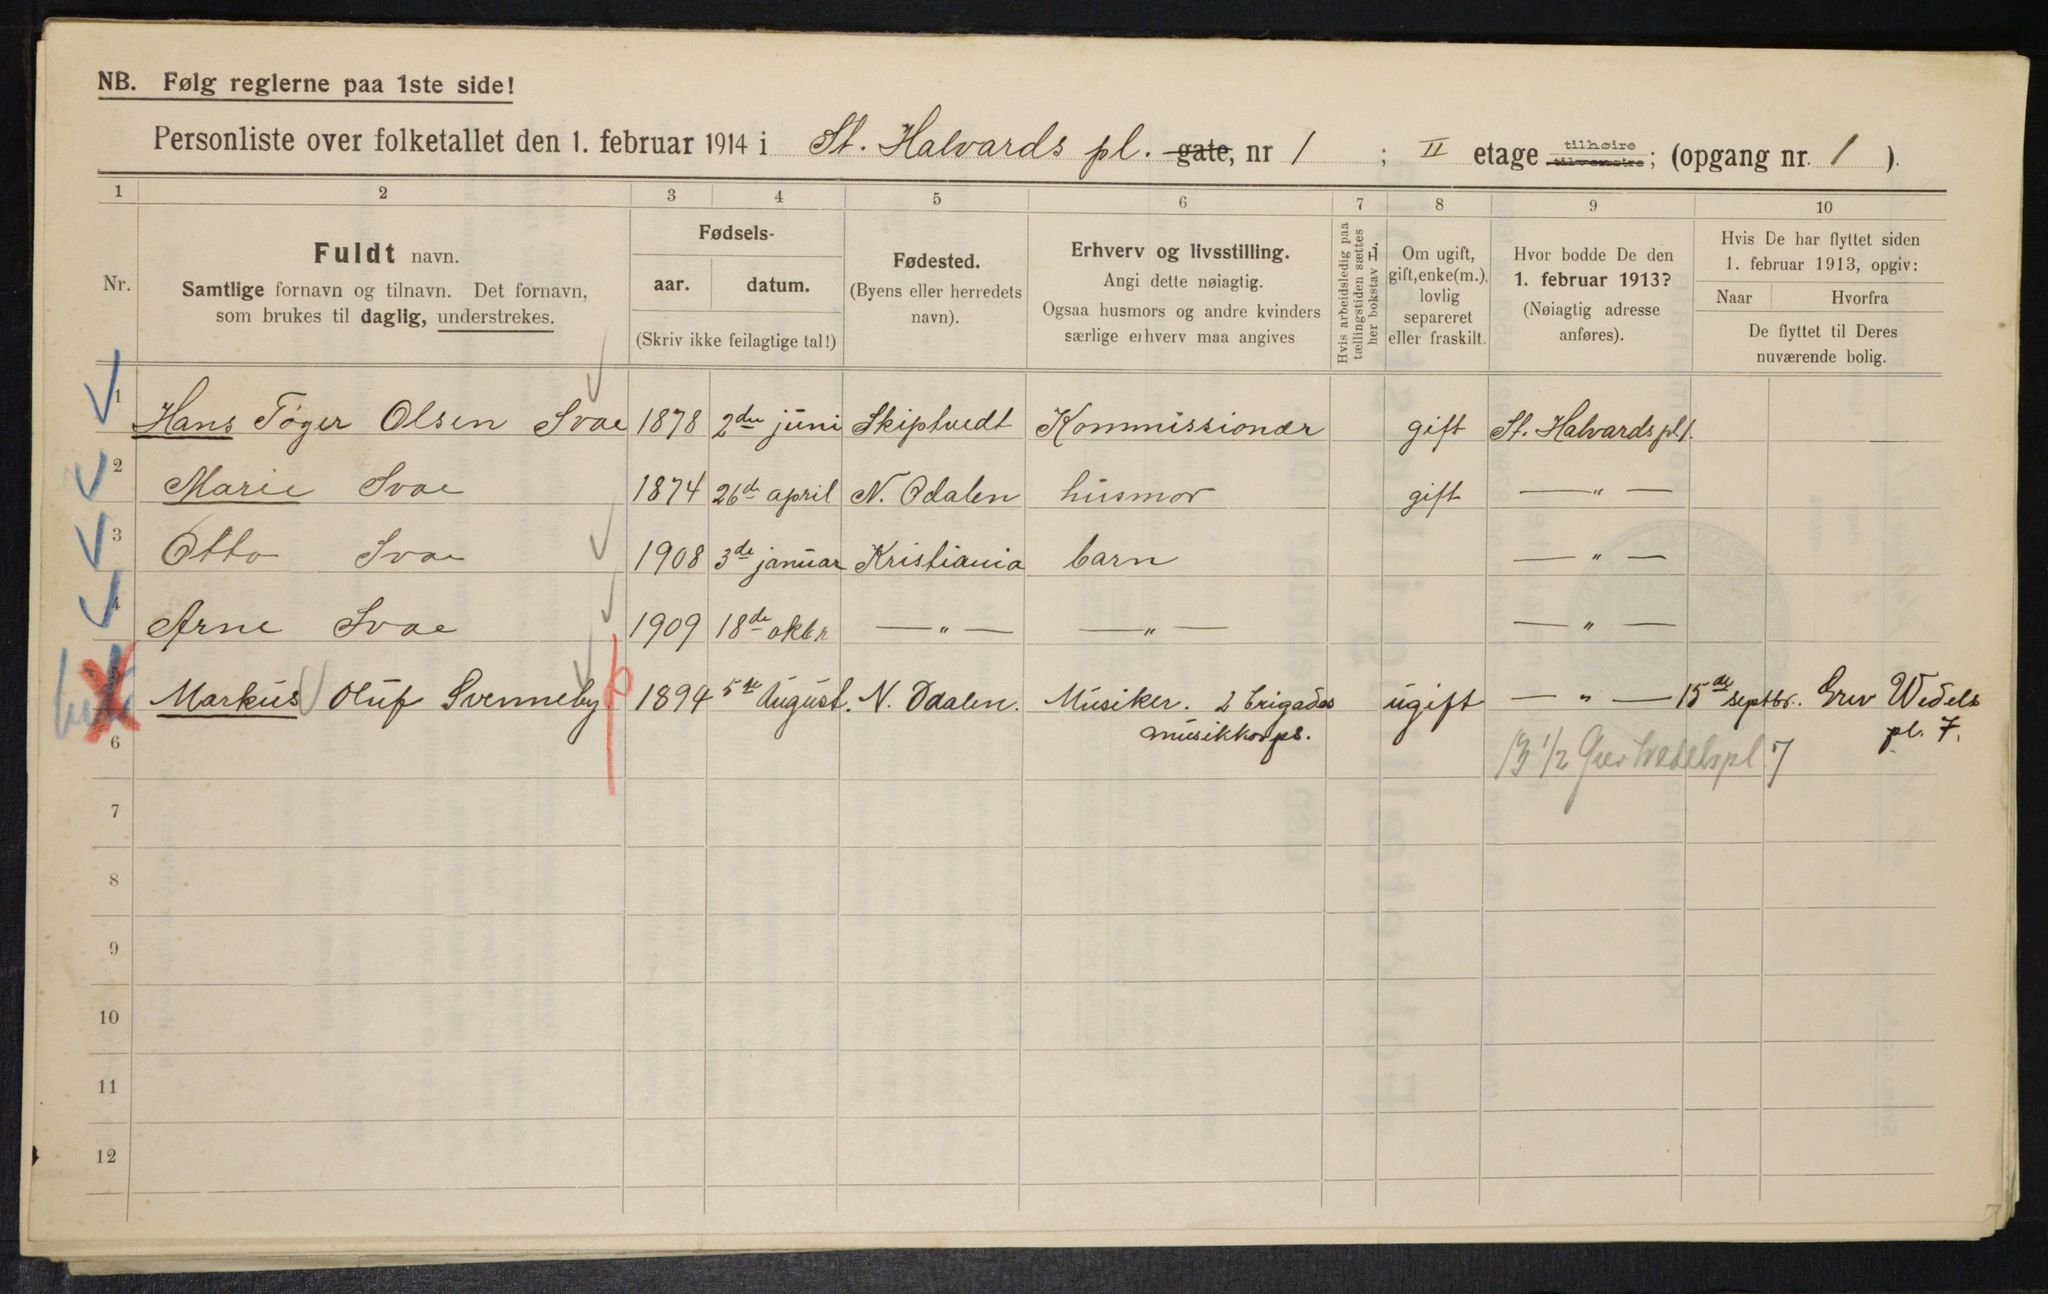 NB. Følg reglerne paa 1ste side!
Personliste over folketallet den 1. februar 1914 i St. Halvards pl. gate, nr 1 ; II etage tilhøire tilvenstre; (opgang nr. 1 ).
1 2 3 4 5 6 7 8 9 10
Nr.
Fuldt navn.
Samtlige fornavn og tilnavn. Det fornavn,
som brukes til daglig, understrekes.
Fødsels-
aar. datum.
(Skriv ikke feilagtige tal!)
Fødested.
(Byens eller herredets
navn).
Erhverv og livsstilling.
Angi dette nøiagtig.
Ogsaa husmors og andre kvinders
særlige erhverv maa angives
Hvis arbeidsledig paa
tællingstiden sættes
her bokstav L.
Om ugift,
gift, enke(m.),
lovlig
separeret
eller fraskilt.
Hvor bodde De den
1. februar 1913?
(Nøiagtig adresse
anføres).
Hvis De har flyttet siden
1. februar 1913, opgiv:
Naar Hvorfra
De flyttet til Deres
nuværende bolig.
1 Hans Tøger Olsen Svae 1878 2den juni Skiptvedt Kommissionær gift St. Halvards pl 1.
2 Marie Svae 1874 26de april N. Odalen husmor gift — " —
3 Otto Svae 1908 3de januar Kristiania barn — " —
4 Arne Svae 1909 18de oktbr — " — — " — — " —
Markus Oluf Svenneby 1894 5te August. N. Odalen. Musiker. 2 brigades ugift — " — 15de septbr. Grev Wedels
6 musikkorps. pl. 7.
13 1/2 Grev Wedelspl 7
7
8
9
10
11
12